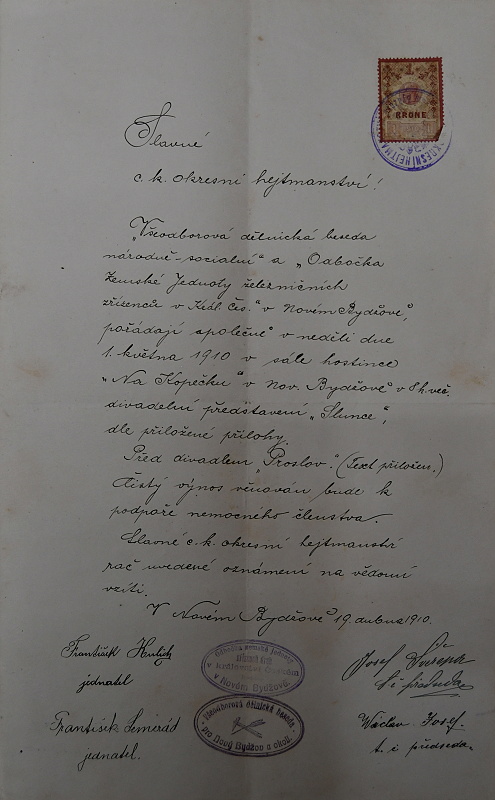 1
KRONE
OKRESNÍ HEJTMAN
Slavné
c. k. okresní hejtmanství!
„Všeodborová dělnická beseda
národně-socialní“ a „Odbočka
Zemské Jednoty železničních
zřízenců v Král. Čes.“ v Novém Bydžově,
pořádají společně v neděli dne
1. května 1910 v sále hostince
„Na Kopečku“ v Nov. Bydžově v 8 h. več.
divadelní představení „Slunce“,
dle přiložené přílohy.
Před divadlem „Proslov.“ (Text přiložen.)
Čistý výnos věnován bude k
podpoře nemocného členstva.
Slavné c. k. okresní hejtmanství
rač uvedené oznámení na vědomí
vzíti.
V Novém Bydžově 19. dubna 1910.
František
jednatel
František Semerád
jednatel.
Odbočka zemské jednoty
v království Českém
v Novém Bydžově.
Všeodborová dělnická beseda
pro Nový Bydžov a okolí.
Josef
t. č. předseda
Václav Josef
t. č. předseda